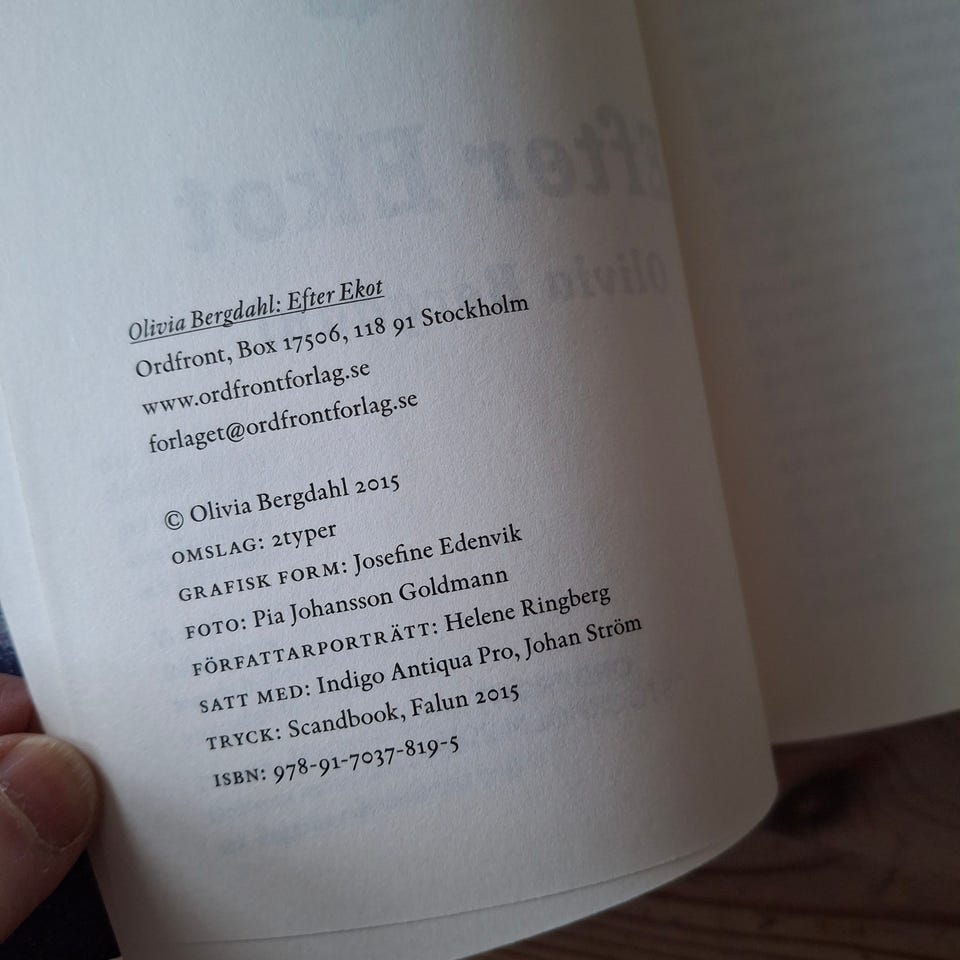 Olivia Bergdahl: Efter Ekot
Ordfront, Box 17506, 118 91 Stockholm
www.ordfrontforlag.se
forlaget@ordfrontforlag.se
© Olivia Bergdahl 2015
OMSLAG: 2typer
GRAFISK FORM: Josefine Edenvik
FOTO: Pia Johansson Goldmann
FÖRFATTARPORTRÄTT: Helene Ringberg
SATT MED: Indigo Antiqua Pro, Johan Ström
TRYCK: Scandbook, Falun 2015
ISBN: 978-91-7037-819-5